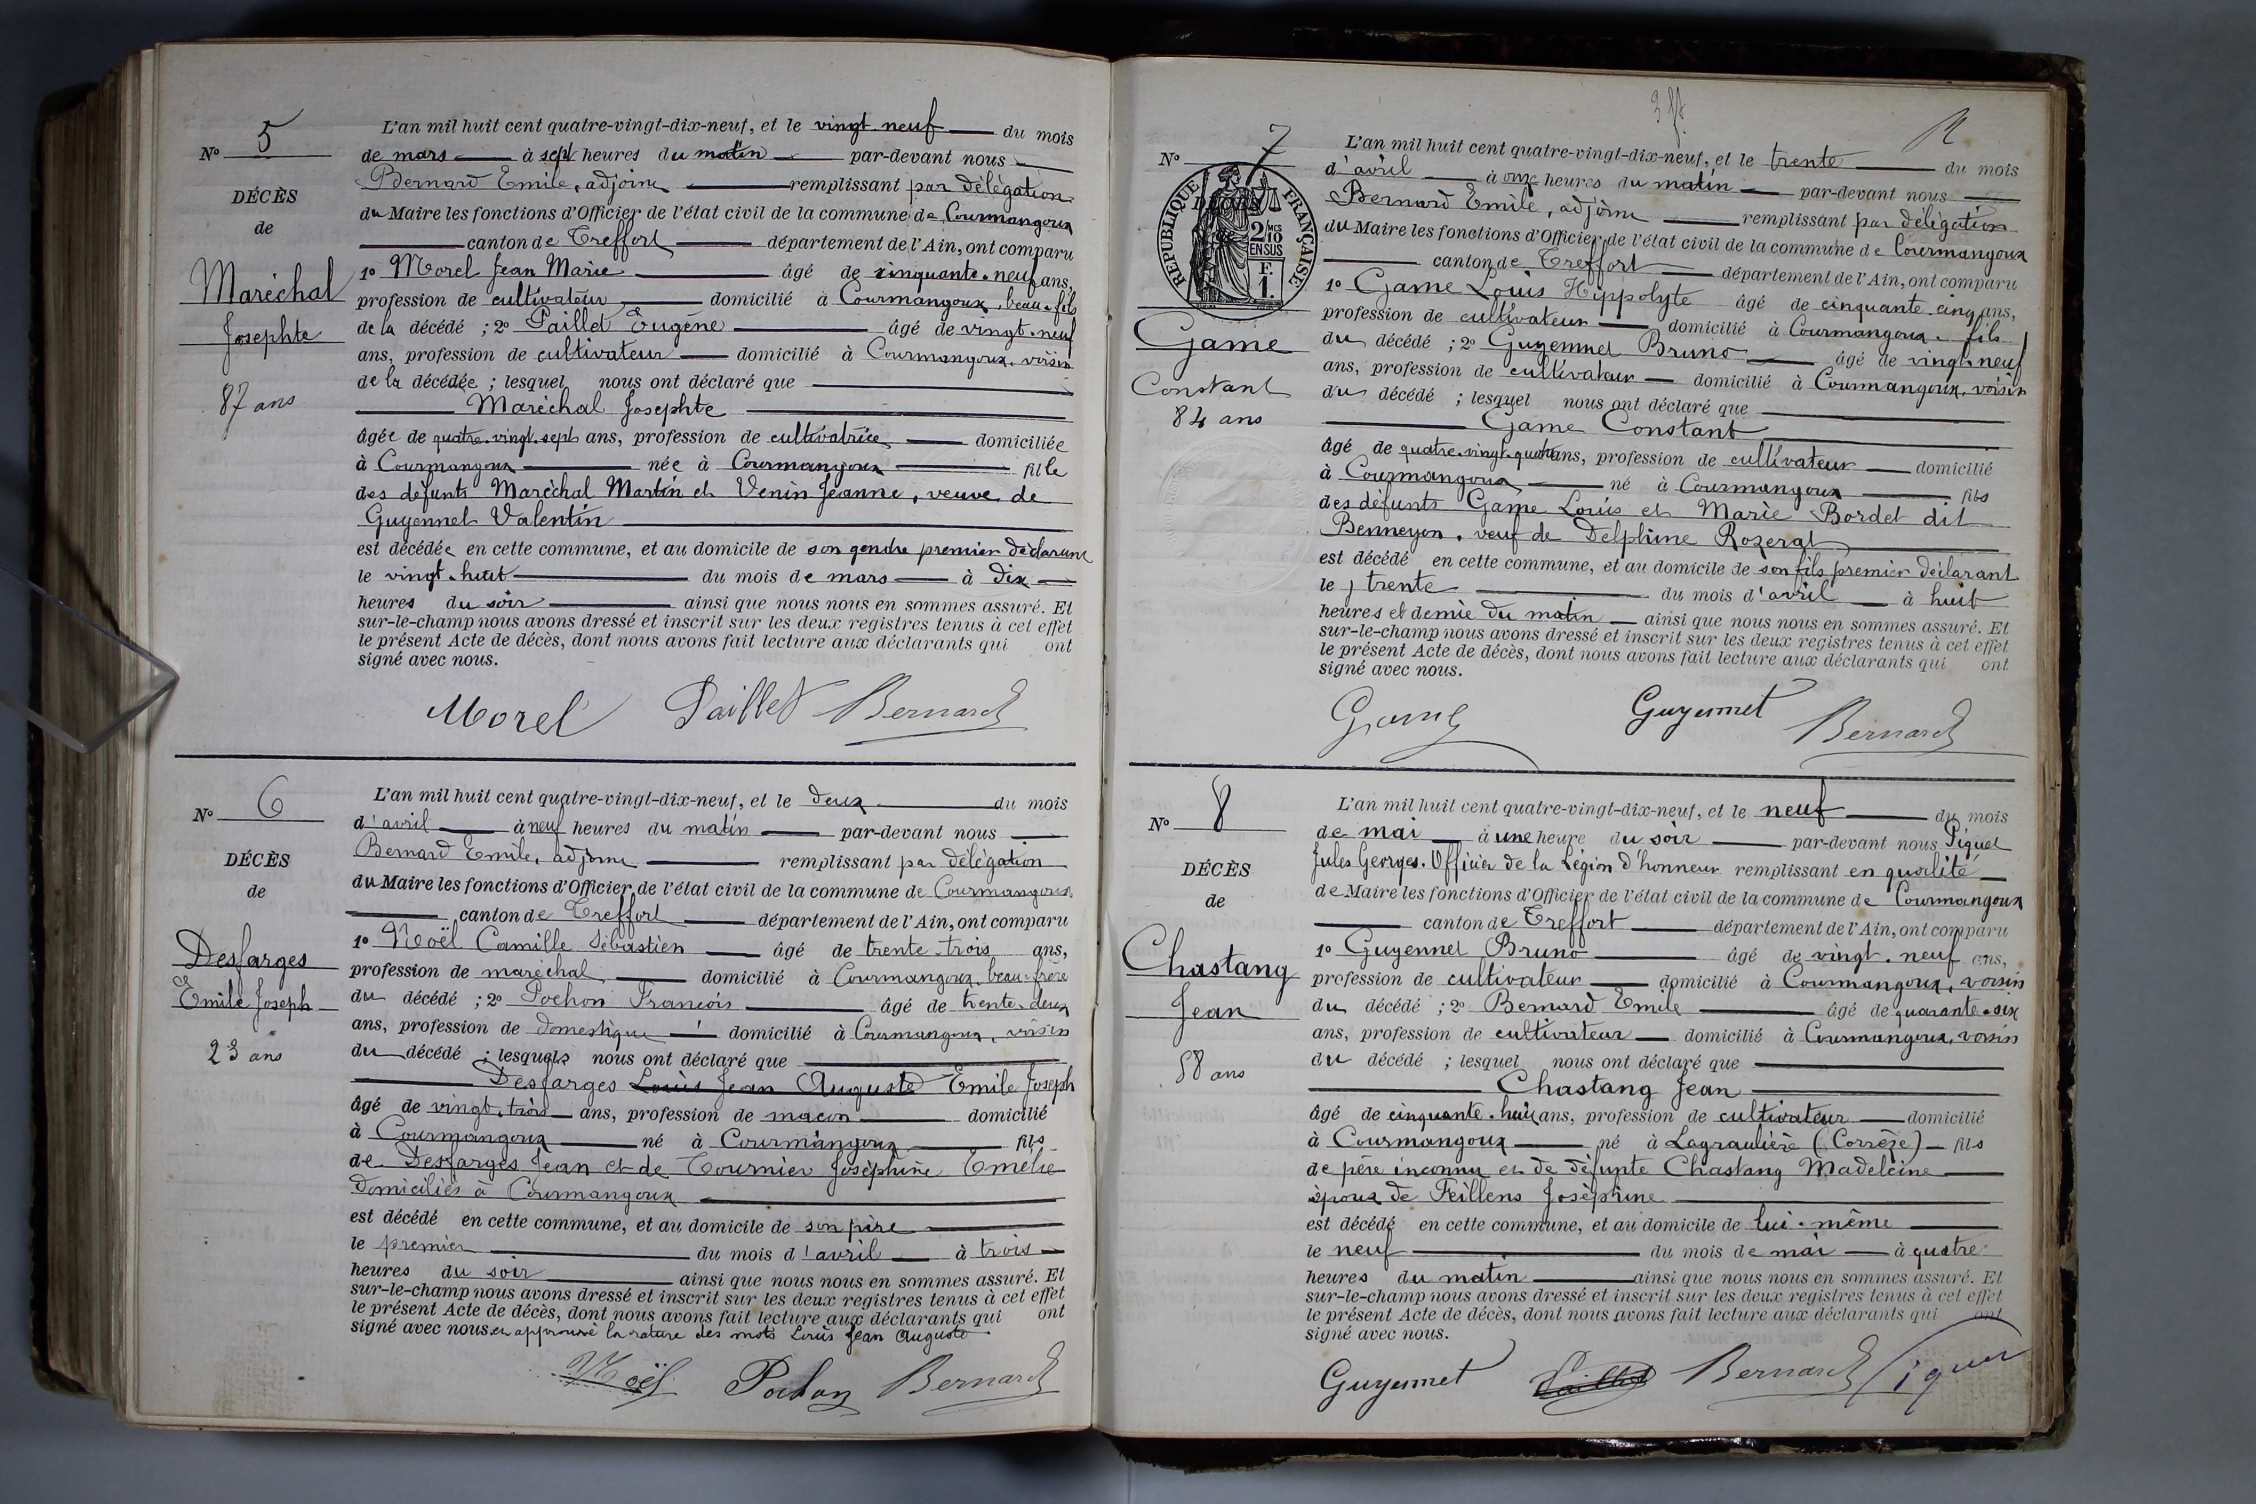 5
L'an mil huit cent quatre-vingt-dix-neuf, et le vingt-neuf du mois
N°
de mars à sept heures du matin par-devant nous
DÉCÈS
Bernard Emile, adjoint remplissant par délégation
du Maire les fonctions d'Officier de l'état civil de la commune de Courmangoux
de
canton de Treffort département de l'Ain, ont comparu
Maréchal
1° Morel Jean Marie âgé de cinquante-neuf ans,
profession de cultivateur domicilié à Courmangoux, beau-fils
Josephte
de la décédé ; 2° Paillet Eugène âgé de vingt-neuf
ans, profession de cultivateur domicilié à Courmangoux, voisin
de la décédée ; lesquel nous ont déclaré que
87 ans
Maréchal Josephte
âgée de quatre-vingt-sept ans, profession de cultivatrice domiciliée
à Courmangoux née à Courmangoux fille
des défunts Maréchal Martin et Venin Jeanne, veuve de
Guyennet Valentin
est décédée en cette commune, et au domicile de son gendre premier déclarant
le vingt-huit du mois de mars à dix
heures du soir ainsi que nous nous en sommes assuré. Et
sur-le-champ nous avons dressé et inscrit sur les deux registres tenus à cet effet
le présent Acte de décès, dont nous avons fait lecture aux déclarants qui ont
signé avec nous.
Morel Paillet Bernard
N° 6
L'an mil huit cent quatre-vingt-dix-neuf, et le deux du mois
d'avril à neuf heures du matin par-devant nous
DÉCÈS
Bernard Emile, adjoint remplissant par délégation
du Maire les fonctions d'Officier de l'état civil de la commune de Courmangoux
de
canton de Treffort département de l'Ain, ont comparu
Desfarges
1° Noël Camille Sébastien âgé de trente-trois ans,
profession de maréchal domicilié à Courmangoux, beau-frère
Emile Joseph
du décédé ; 2° Pochon François âgé de trente-deux
ans, profession de domestique domicilié à Courmangoux, voisin
23 ans
du décédé ; lesquels nous ont déclaré que
Desfarges Louis Jean Auguste Emile Joseph
âgé de vingt-trois ans, profession de maçon domicilié
à Courmangoux né à Courmangoux fils
de Desfarges Jean et de Tournier Joséphine Emélie
domiciliés à Courmangoux
est décédé en cette commune, et au domicile de son père
le premier du mois d'avril à trois
heures du soir ainsi que nous nous en sommes assuré. Et
sur-le-champ nous avons dressé et inscrit sur les deux registres tenus à cet effet
le présent Acte de décès, dont nous avons fait lecture aux déclarants qui ont
signé avec nous et approuvé la rature des mots Louis Jean Auguste
Noël Pochon Bernard
N° 7
L'an mil huit cent quatre-vingt-dix-neuf, et le trente du mois
d'avril à onze heures du matin par-devant nous
RÉPUBLIQUE FRANÇAISE
2 MES 10 EN SUS
F. 1.
Bernard Emile, adjoint remplissant par délégation
du Maire les fonctions d'Officier de l'état civil de la commune de Courmangoux
canton de Treffort département de l'Ain, ont comparu
1° Game Louis Hippolyte âgé de cinquante-cinq ans,
profession de cultivateur domicilié à Courmangoux, fils
Game
du décédé ; 2° Guyennet Bruno âgé de vingt-neuf
ans, profession de cultivateur domicilié à Courmangoux, voisin
Constant
du décédé ; lesquel nous ont déclaré que
84 ans
Game Constant
âgé de quatre-vingt-quatre ans, profession de cultivateur domicilié
à Courmangoux né à Courmangoux fils
des défunts Game Louis et Marie Bordet dit
Benneyon, veuf de Delphine Rozerat
est décédé en cette commune, et au domicile de son fils premier déclarant
le trente du mois d'avril à huit
heures et demie du matin ainsi que nous nous en sommes assuré. Et
sur-le-champ nous avons dressé et inscrit sur les deux registres tenus à cet effet
le présent Acte de décès, dont nous avons fait lecture aux déclarants qui ont
signé avec nous.
Game Guyennet Bernard
N° 8
L'an mil huit cent quatre-vingt-dix-neuf, et le neuf du mois
de mai à une heure du soir par-devant nous Piquet
DÉCÈS
Jules Georges, Officier de la Légion d'honneur remplissant en qualité
de Maire les fonctions d'Officier de l'état civil de la commune de Courmangoux
de
canton de Treffort département de l'Ain, ont comparu
Chastang
1° Guyennet Bruno âgé de vingt-neuf ans,
profession de cultivateur domicilié à Courmangoux, voisin
Jean
du décédé ; 2° Bernard Emile âgé de quarante-six
ans, profession de cultivateur domicilié à Courmangoux, voisin
58 ans
du décédé ; lesquel nous ont déclaré que
Chastang Jean
âgé de cinquante-huit ans, profession de cultivateur domicilié
à Courmangoux né à Lagraulière (Corrèze) fils
de père inconnu et de défunte Chastang Madeleine
époux de Feillens Joséphine
est décédé en cette commune, et au domicile de lui-même
le neuf du mois de mai à quatre
heures du matin ainsi que nous nous en sommes assuré. Et
sur-le-champ nous avons dressé et inscrit sur les deux registres tenus à cet effet
le présent Acte de décès, dont nous avons fait lecture aux déclarants qui ont
signé avec nous.
Guyennet Paillet Bernard Piquet